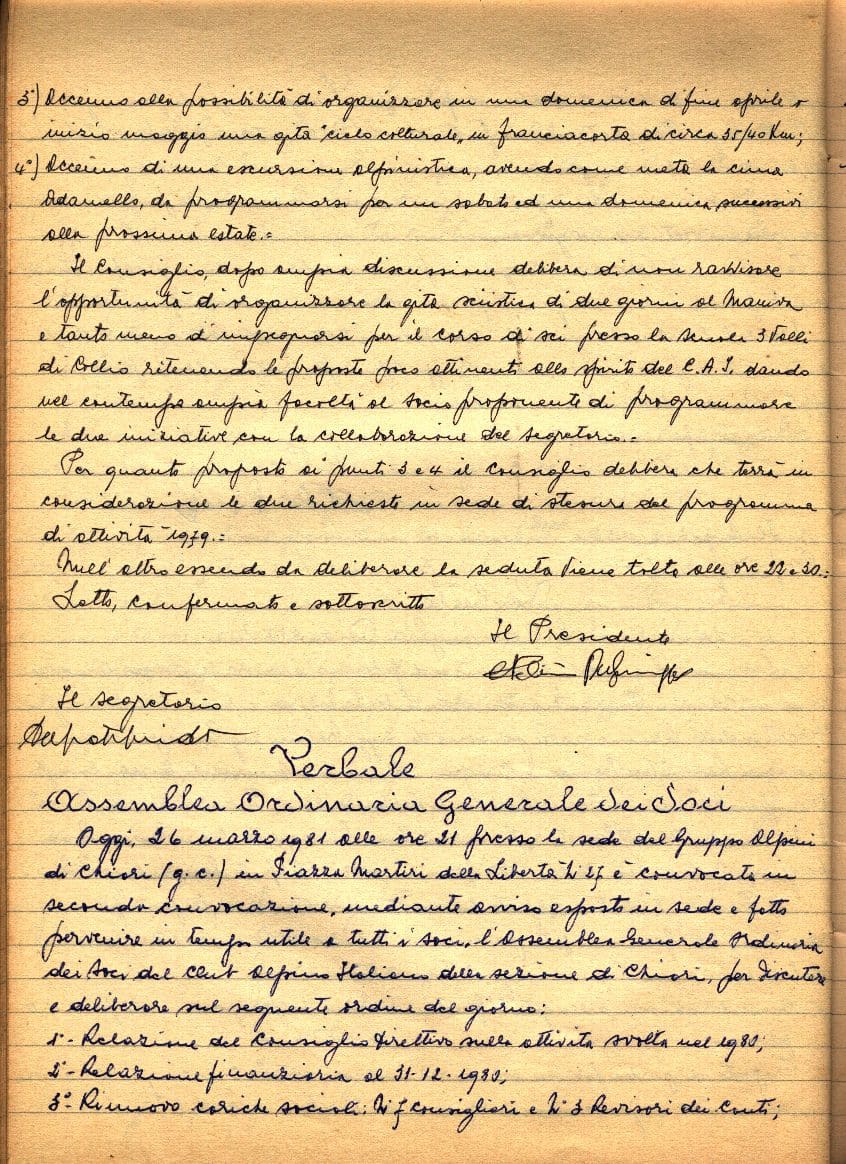 3°) Accenno alla possibilità di organizzare in una domenica di fine aprile o
inizio maggio una gita "ciclo colturale" in franciacorta di circa 35/40 Km;
4°) Accenno di una escursione alpinistica, avendo come meta la cima
Adamello, da programmarsi per un sabato ed una domenica successivi
alla prossima estate.=
Il Consiglio, dopo ampia discussione delibera di non ravvisare
l'opportunità di organizzare la gita sciistica di due giorni al Maniva
e tanto meno d'impegnarsi per il corso di sci presso la scuola 3 Valli
di Collio ritenendo le proposte poco attinenti allo spirito del C.A.I. dando
nel contempo ampia facoltà al socio proponente di programmare
le due iniziative con la collaborazione del segretario.=
Per quanto proposto ai punti 3 e 4 il Consiglio delibera che terrà in
considerazione le due richieste in sede di stesura del programma
di attività 1979.=
Null'altro essendo da deliberare la seduta viene tolta alle ore 22 e 30.=
Letto, confermato e sottoscritto
Il Presidente
Il segretario
Verbale
Assemblea Ordinaria Generale dei Soci
Oggi, 26 marzo 1981 alle ore 21 presso la sede del Gruppo Alpini
di Chiari (g.c.) in Piazza Martiri della Libertà N° 27 è convocata in
seconda convocazione, mediante avviso esposto in sede e fatto
pervenire in tempo utile a tutti i soci, l'Assemblea Generale Ordinaria
dei Soci del Club Alpino Italiano della sezione di Chiari, per discutere
e deliberare sul seguente ordine del giorno:
1° - Relazione del Consiglio Direttivo sulla attività svolta nel 1980;
2° - Relazione finanziaria al 31-12-1980;
3° - Rinnovo cariche sociali: N° 7 Consiglieri e N° 3 Revisori dei Conti;